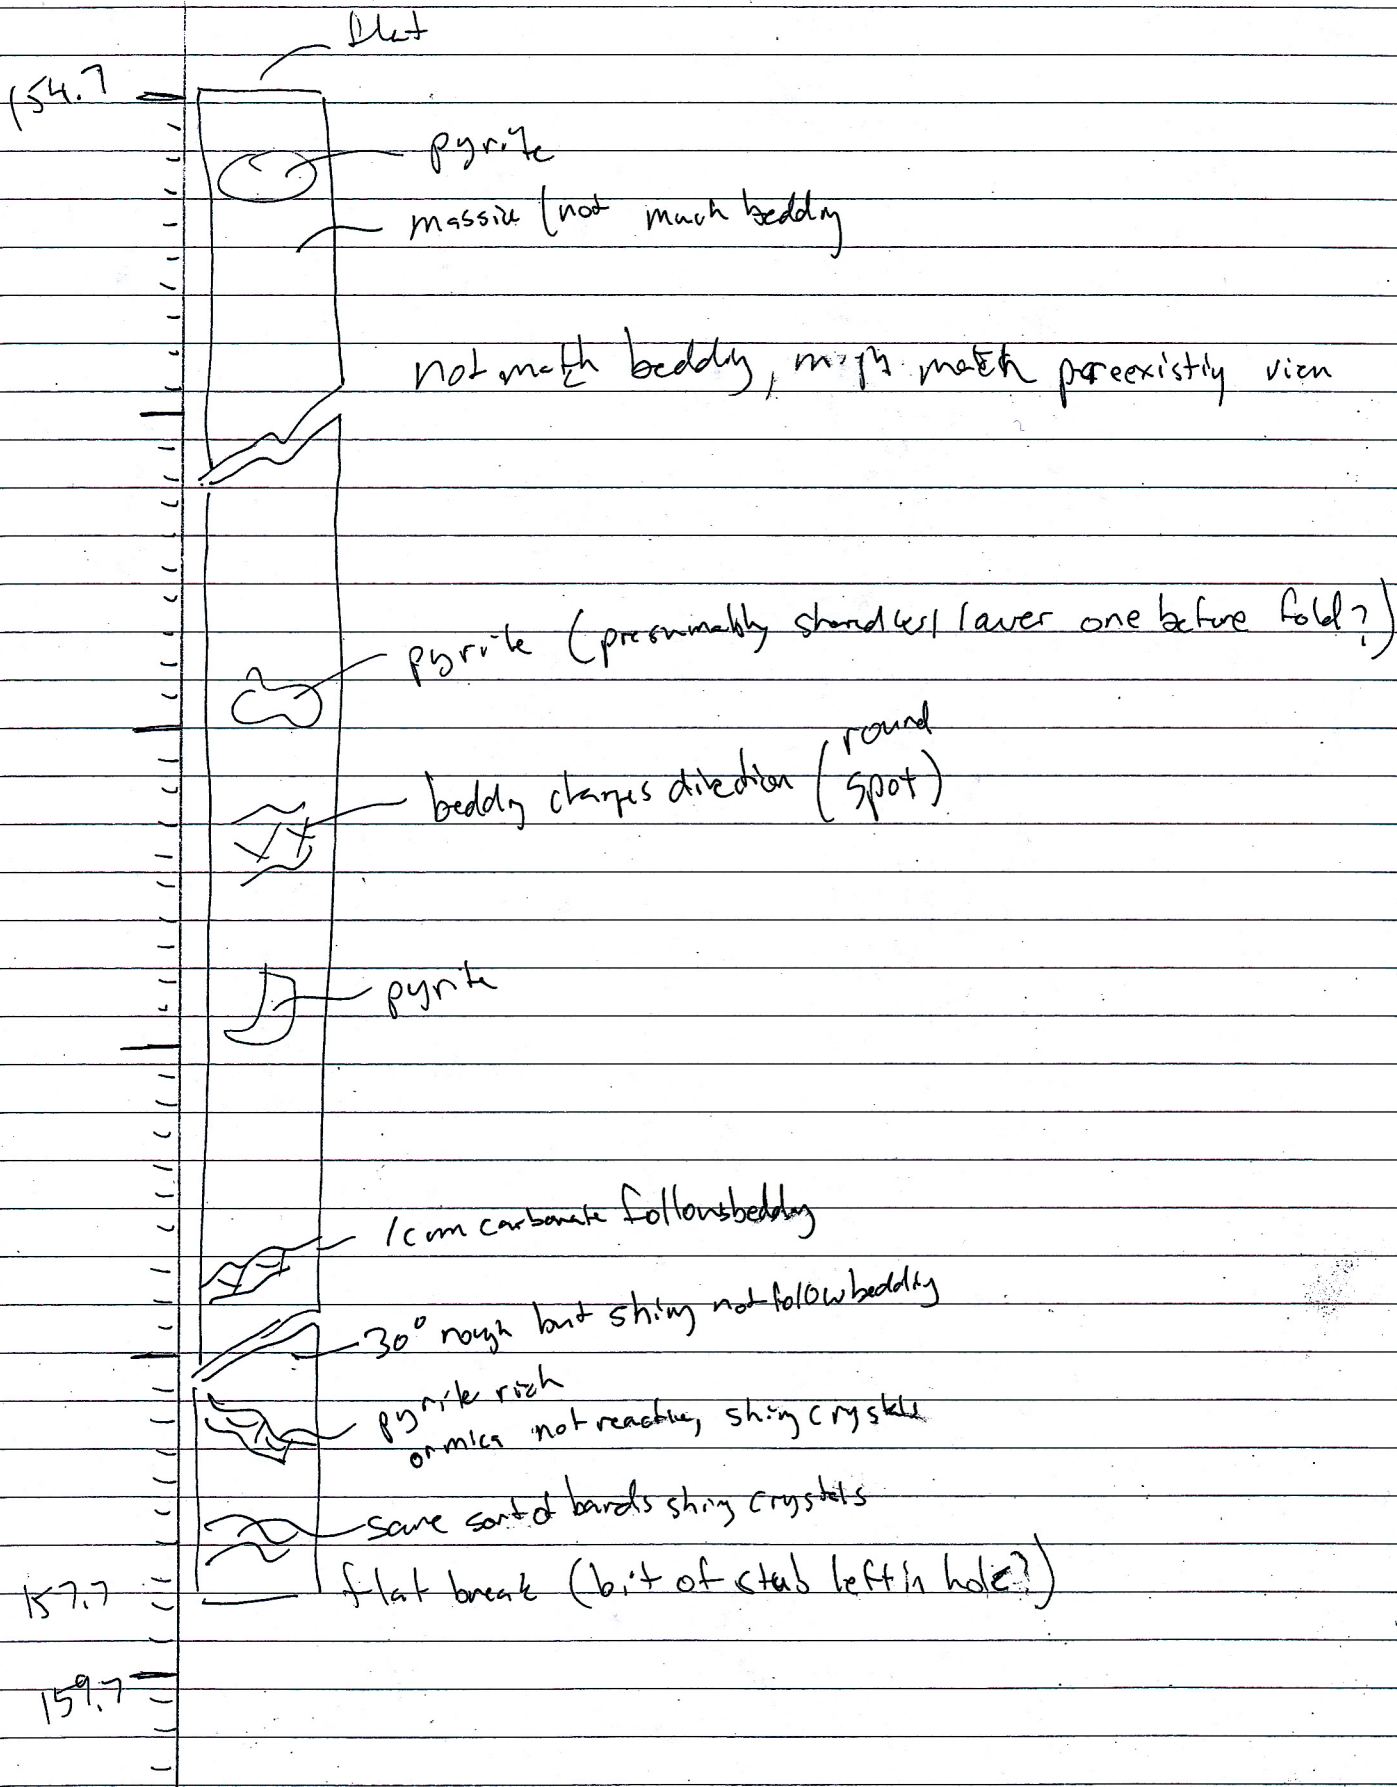 flat
154.7
pyrite
massive (not much bedding
not match bedding, might match preexisting vien
pyrite (presumably shared w/ lower one before fold?)
bedding changes direction (round
spot)
pyrite
1cm carbonate follows bedding
30° rough but shiny not follow bedding
pyrite rich
or mica not reactive, shiny crystals
same sort of bands shiny crystals
157.7 flat break (bit of stub left in hole?)
159.7